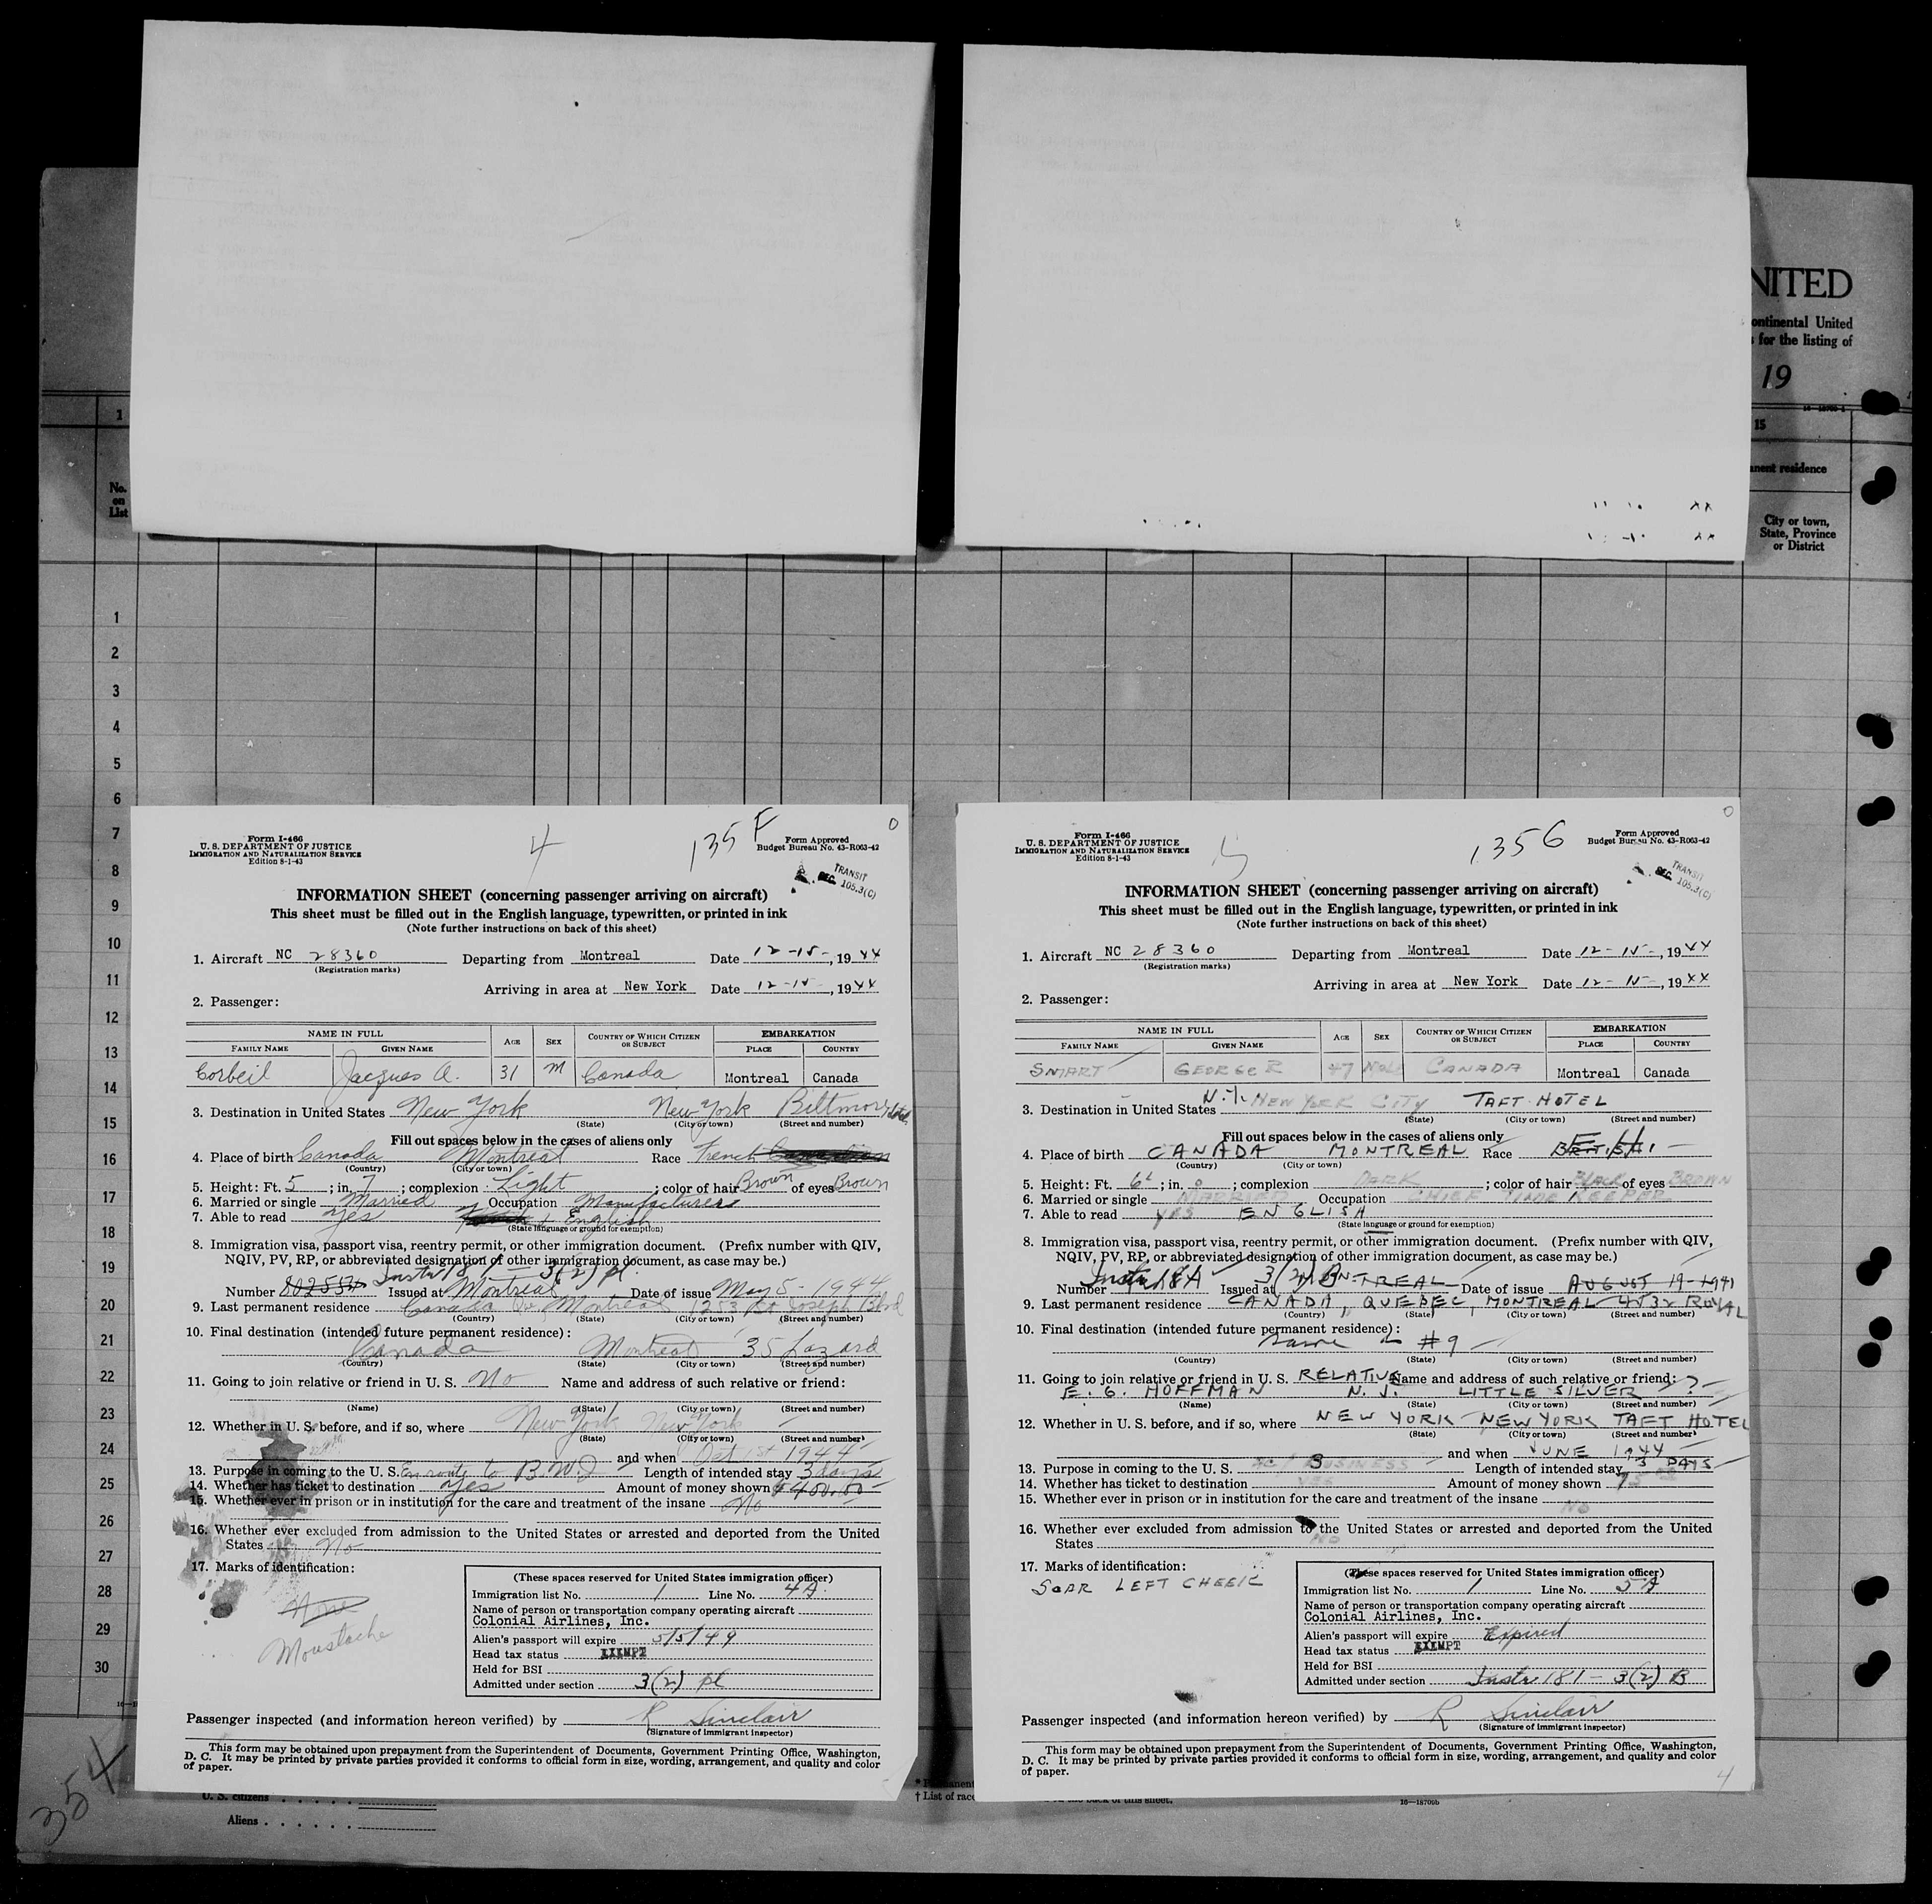 NITED
ontinental United
s for the listing of
19
16—18709-1
1
15
anent residence
No.
on
List
City or town,
State, Province
or District
1
2
3
4
5
6
7
8
9
10
11
12
13
14
15
16
17
18
19
20
21
22
23
24
25
26
27
28
29
30
354
Form I-466
U. S. DEPARTMENT OF JUSTICE
IMMIGRATION AND NATURALIZATION SERVICE
Edition 8-1-43
4
135 F
Form Approved
Budget Bureau No. 43-R063-42
0
TRANSIT
SEC. 105.3(C)
INFORMATION SHEET (concerning passenger arriving on aircraft)
This sheet must be filled out in the English language, typewritten, or printed in ink
(Note further instructions on back of this sheet)
1. Aircraft NC 28360 Departing from Montreal Date 12-15-, 1944
(Registration marks)
Arriving in area at New York Date 12-15-, 1944
2. Passenger:
NAME IN FULL AGE SEX COUNTRY OF WHICH CITIZEN OR SUBJECT EMBARKATION
FAMILY NAME GIVEN NAME PLACE COUNTRY
Corbeil Jacques A. 31 M Canada Montreal Canada
3. Destination in United States New York New York Biltmore Hotel
(State) (City or town) (Street and number)
Fill out spaces below in the cases of aliens only
4. Place of birth Canada Montreal Race French Canadian
(Country) (City or town)
5. Height: Ft. 5; in. 7; complexion Light; color of hair Brown of eyes Brown
6. Married or single Married Occupation Manufacturers
7. Able to read Yes French & English
(State language or ground for exemption)
8. Immigration visa, passport visa, reentry permit, or other immigration document. (Prefix number with QIV,
NQIV, PV, RP, or abbreviated designation of other immigration document, as case may be.)
Instr 181 — 3(2) pl
Number Issued at Montreal Date of issue May 5-1944
9. Last permanent residence Canada Qu. Montreal 1253 St Joseph Blvd
(Country) (State) (City or town) (Street and number)
10. Final destination (intended future permanent residence):
Canada Montreal 35 Lazard
(Country) (State) (City or town) (Street and number)
11. Going to join relative or friend in U. S. No Name and address of such relative or friend:
(Name) (State) (City or town) (Street and number)
12. Whether in U. S. before, and if so, where New York New York
(State) (City or town) (Street and number)
and when Oct 1st 1944
13. Purpose in coming to the U. S. En route to B.W.I Length of intended stay 3 days
14. Whether has ticket to destination Yes Amount of money shown $400.00
15. Whether ever in prison or in institution for the care and treatment of the insane No
16. Whether ever excluded from admission to the United States or arrested and deported from the United
States No
17. Marks of identification:
None
Moustache
(These spaces reserved for United States immigration officer)
Immigration list No. 1 Line No. 4A
Name of person or transportation company operating aircraft
Colonial Airlines, Inc.
Alien's passport will expire 5/5/49
Head tax status EXEMPT
Held for BSI
Admitted under section 3(2) pl
Passenger inspected (and information hereon verified) by R Sinclair
(Signature of immigrant inspector)
This form may be obtained upon prepayment from the Superintendent of Documents, Government Printing Office, Washington,
D. C. It may be printed by private parties provided it conforms to official form in size, wording, arrangement, and quality and color
of paper.
Form I-466
U. S. DEPARTMENT OF JUSTICE
IMMIGRATION AND NATURALIZATION SERVICE
Edition 8-1-43
5
135 G
Form Approved
Budget Bureau No. 43-R063-42
0
TRANSIT
SEC. 105.3(C)
INFORMATION SHEET (concerning passenger arriving on aircraft)
This sheet must be filled out in the English language, typewritten, or printed in ink
(Note further instructions on back of this sheet)
1. Aircraft NC 28360 Departing from Montreal Date 12-15-, 1944
(Registration marks)
Arriving in area at New York Date 12-15-, 1944
2. Passenger:
NAME IN FULL AGE SEX COUNTRY OF WHICH CITIZEN OR SUBJECT EMBARKATION
FAMILY NAME GIVEN NAME PLACE COUNTRY
SMART GEORGE R 47 MALE CANADA Montreal Canada
3. Destination in United States N.Y. NEW YORK CITY TAFT HOTEL
(State) (City or town) (Street and number)
Fill out spaces below in the cases of aliens only
4. Place of birth CANADA MONTREAL Race BRITISH
(Country) (City or town)
5. Height: Ft. 6; in. 0; complexion DARK; color of hair BLACK of eyes BROWN
6. Married or single MARRIED Occupation CHIEF TIME KEEPER
7. Able to read YES ENGLISH
(State language or ground for exemption)
8. Immigration visa, passport visa, reentry permit, or other immigration document. (Prefix number with QIV,
NQIV, PV, RP, or abbreviated designation of other immigration document, as case may be.)
Number Instr 181 Issued at 3(2) B MONTREAL Date of issue AUGUST 19-1941
9. Last permanent residence CANADA, QUEBEC, MONTREAL 4532 ROYAL
(Country) (State) (City or town) (Street and number)
10. Final destination (intended future permanent residence):
Same as #9
(Country) (State) (City or town) (Street and number)
11. Going to join relative or friend in U. S. RELATIVE Name and address of such relative or friend:
E. G. HOFFMAN N. J. LITTLE SILVER ?
(Name) (State) (City or town) (Street and number)
12. Whether in U. S. before, and if so, where NEW YORK NEW YORK TAFT HOTEL
(State) (City or town) (Street and number)
and when JUNE 1944
13. Purpose in coming to the U. S. BUSINESS B Length of intended stay 3 DAYS
14. Whether has ticket to destination YES Amount of money shown 75
15. Whether ever in prison or in institution for the care and treatment of the insane NO
16. Whether ever excluded from admission to the United States or arrested and deported from the United
States NO
17. Marks of identification:
SCAR LEFT CHEEK
(These spaces reserved for United States immigration officer)
Immigration list No. 1 Line No. 5A
Name of person or transportation company operating aircraft
Colonial Airlines, Inc.
Alien's passport will expire Expired
Head tax status EXEMPT
Held for BSI
Admitted under section Instr 181 - 3(2) B
Passenger inspected (and information hereon verified) by R Sinclair
(Signature of immigrant inspector)
This form may be obtained upon prepayment from the Superintendent of Documents, Government Printing Office, Washington,
D. C. It may be printed by private parties provided it conforms to official form in size, wording, arrangement, and quality and color
of paper.
4
U. S. citizens
Aliens
† List of race
on the back of this sheet.
16—18709b